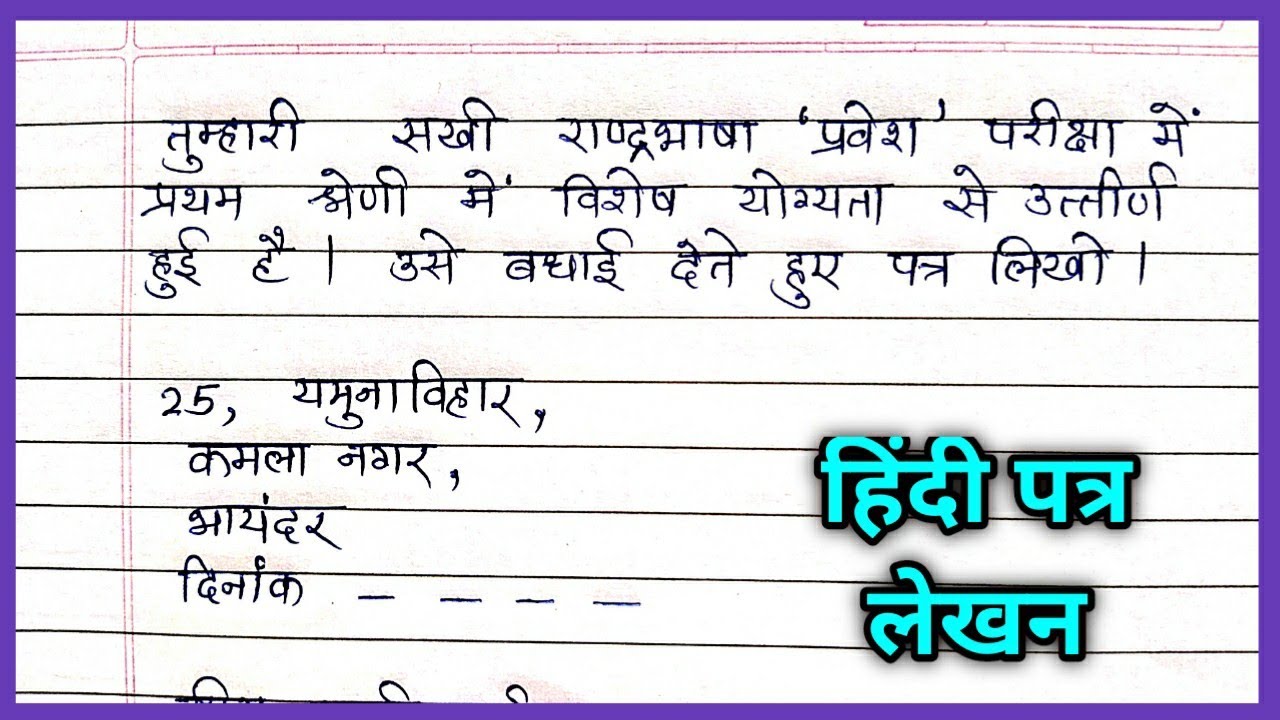 तुम्हारी सखी राष्ट्रभाषा 'प्रवेश' परीक्षा में
प्रथम श्रेणी में विशेष योग्यता से उत्तीर्ण
हुई है । उसे बधाई देते हुए पत्र लिखो ।
25, यमुनाविहार,
कमला नगर,
भायंदर
दिनांक – – – –
हिंदी पत्र
लेखन